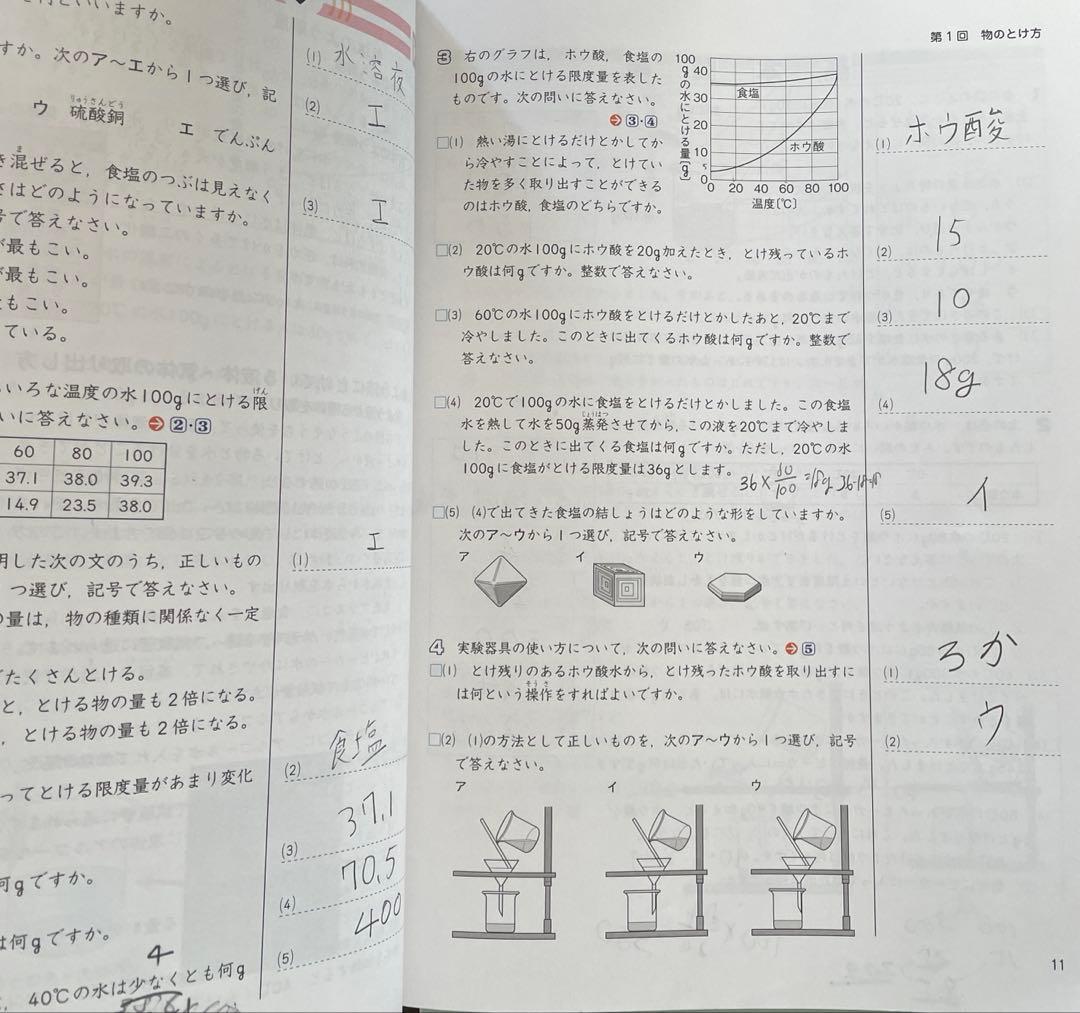 といいますか。
すか。次のア～エから1つ選び，記
ウ 硫酸銅
りゅうさんどう
エ でんぷん
き混ぜると，食塩のつぶは見えなく
ま
さはどのようになっていますか。
号で答えなさい。
が最もこい。
が最もこい。
もこい。
ている。
いろな温度の水100gにとける限
げん
いに答えなさい。 2・3
60 80 100
37.1 38.0 39.3
14.9 23.5 38.0
明した次の文のうち，正しいもの
つ選び，記号で答えなさい。
の量は，物の種類に関係なく一定
でたくさんとける。
と，とける物の量も2倍になる。
，とける物の量も2倍になる。
ってとける限度量があまり変化
何gですか。
は何gですか。
4
，40℃の水は少なくとも何g
(1) 水溶液
(2) エ
(3) エ
(1) エ
(2) 食塩
(3) 37.1
(4) 70.5
(5) 400
第1回 物のとけ方
3 右のグラフは，ホウ酸，食塩の
100gの水にとける限度量を表した
ものです。次の問いに答えなさい。
3・4
□(1) 熱い湯にとけるだけとかしてか
ら冷やすことによって，とけてい
た物を多く取り出すことができる
のはホウ酸，食塩のどちらですか。
100gの水にとける量〔g〕
40
30
20
10
5
0
食塩
ホウ酸
0 20 40 60 80 100
温度〔℃〕
□(2) 20℃の水100gにホウ酸を20g加えたとき，とけ残っているホ
ウ酸は何gですか。整数で答えなさい。
□(3) 60℃の水100gにホウ酸をとけるだけとかしたあと，20℃まで
冷やしました。このときに出てくるホウ酸は何gですか。整数で
答えなさい。
□(4) 20℃で100gの水に食塩をとけるだけとかしました。この食塩
水を熱して水を50g蒸発させてから，この液を20℃まで冷やしま
じょうはつ
した。このときに出てくる食塩は何gですか。ただし，20℃の水
100gに食塩がとける限度量は36gとします。
□(5) (4)で出てきた食塩の結しょうはどのような形をしていますか。
次のア～ウから1つ選び，記号で答えなさい。
ア イ ウ
4 実験器具の使い方について，次の問いに答えなさい。 5
□(1) とけ残りのあるホウ酸水から，とけ残ったホウ酸を取り出すに
は何という操作をすればよいですか。
そうさ
□(2) (1)の方法として正しいものを，次のア～ウから1つ選び，記号
で答えなさい。
ア イ ウ
(1) ホウ酸
(2) 15
(3) 10
(4) 18g
(5) イ
(1) ろか
(2) ウ
11